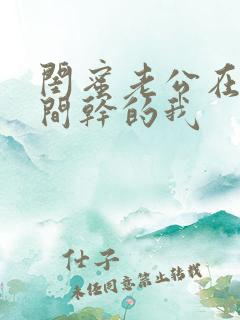 闺蜜老公在
間幹的我
仕子
未经同意禁止转载